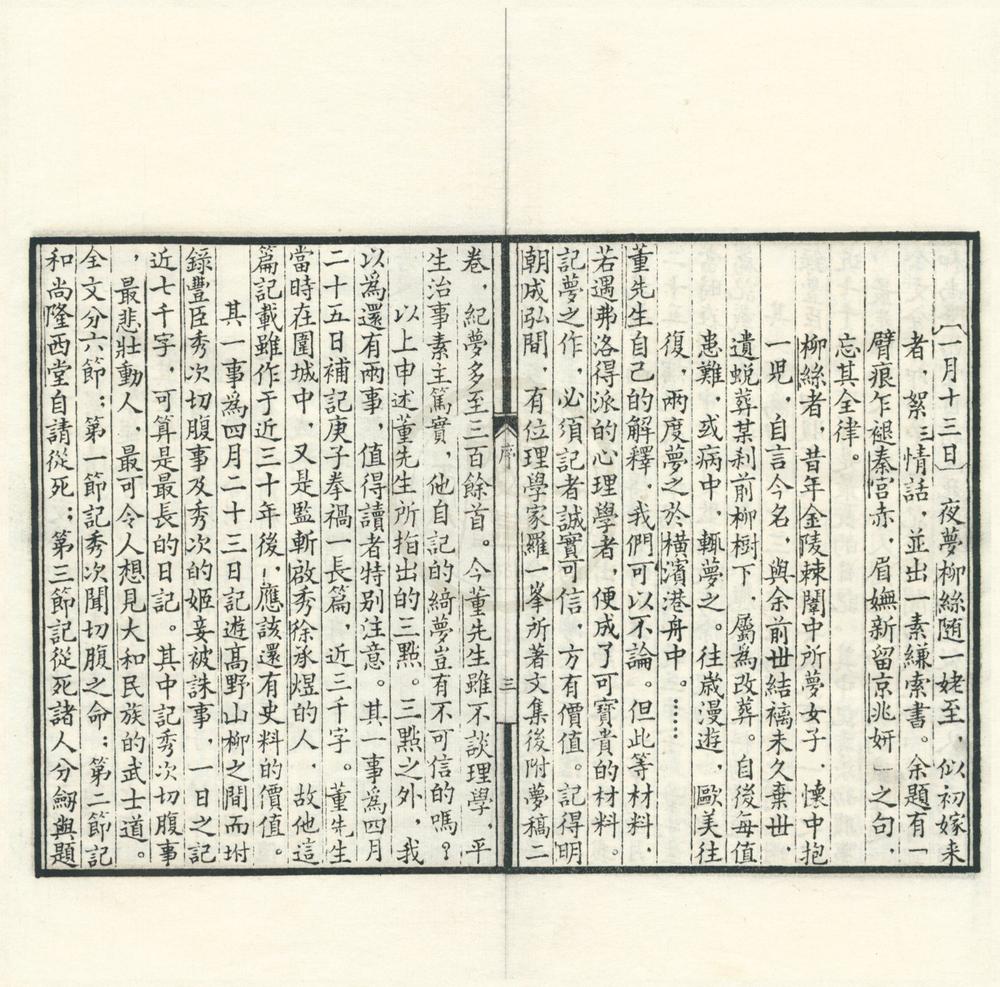 〔一月十三日〕　夜夢柳絲随一姥至，似初嫁来
者，絮三情話，並出一素縑索書。余題有「
臂痕乍褪秦宮赤，眉嫵新留京兆妍」之句，
忘其全律。
柳絲者，昔年金陵棘闈中所夢女子，懷中抱
一兒，自言今名三，與余前世結褵未久棄世，
遺蛻葬某刹前柳樹下，屬為改葬。自後每值
患難，或病中，輒夢之。往歲漫遊，歐美往
復，兩度夢之於橫濱港舟中。……
董先生自己的解釋，我們可以不論。但此等材料，
若遇弗洛得派的心理學者，便成了可寶貴的材料。
記夢之作，必須記者誠實可信，方有價值。記得明
朝成弘間，有位理學家羅一峯所著文集後附夢稿二
序
三
卷，紀夢多至三百餘首。今董先生雖不談理學，平
生治事素主篤實，他自記的綺夢豈有不可信的嗎？
以上申述董先生所指出的三點。三點之外，我
以為還有兩事，值得讀者特别注意。其一事為四月
二十五日補記庚子拳禍一長篇，近三千字。董先生
當時在圍城中，又是監斬啟秀徐承煜的人，故他這
篇記載雖作于近三十年後，應該還有史料的價值。
其一事為四月二十三日記遊高野山柳之間而坿
錄豐臣秀次切腹事及秀次的姬妾被誅事，一日之記
近七千字，可算是最長的日記。其中記秀次切腹事
，最悲壯動人，最可令人想見大和民族的武士道。
全文分六節：第一節記秀次聞切腹之命；第二節記
和尚隆西堂自請從死；第三節記從死諸人分劔與題